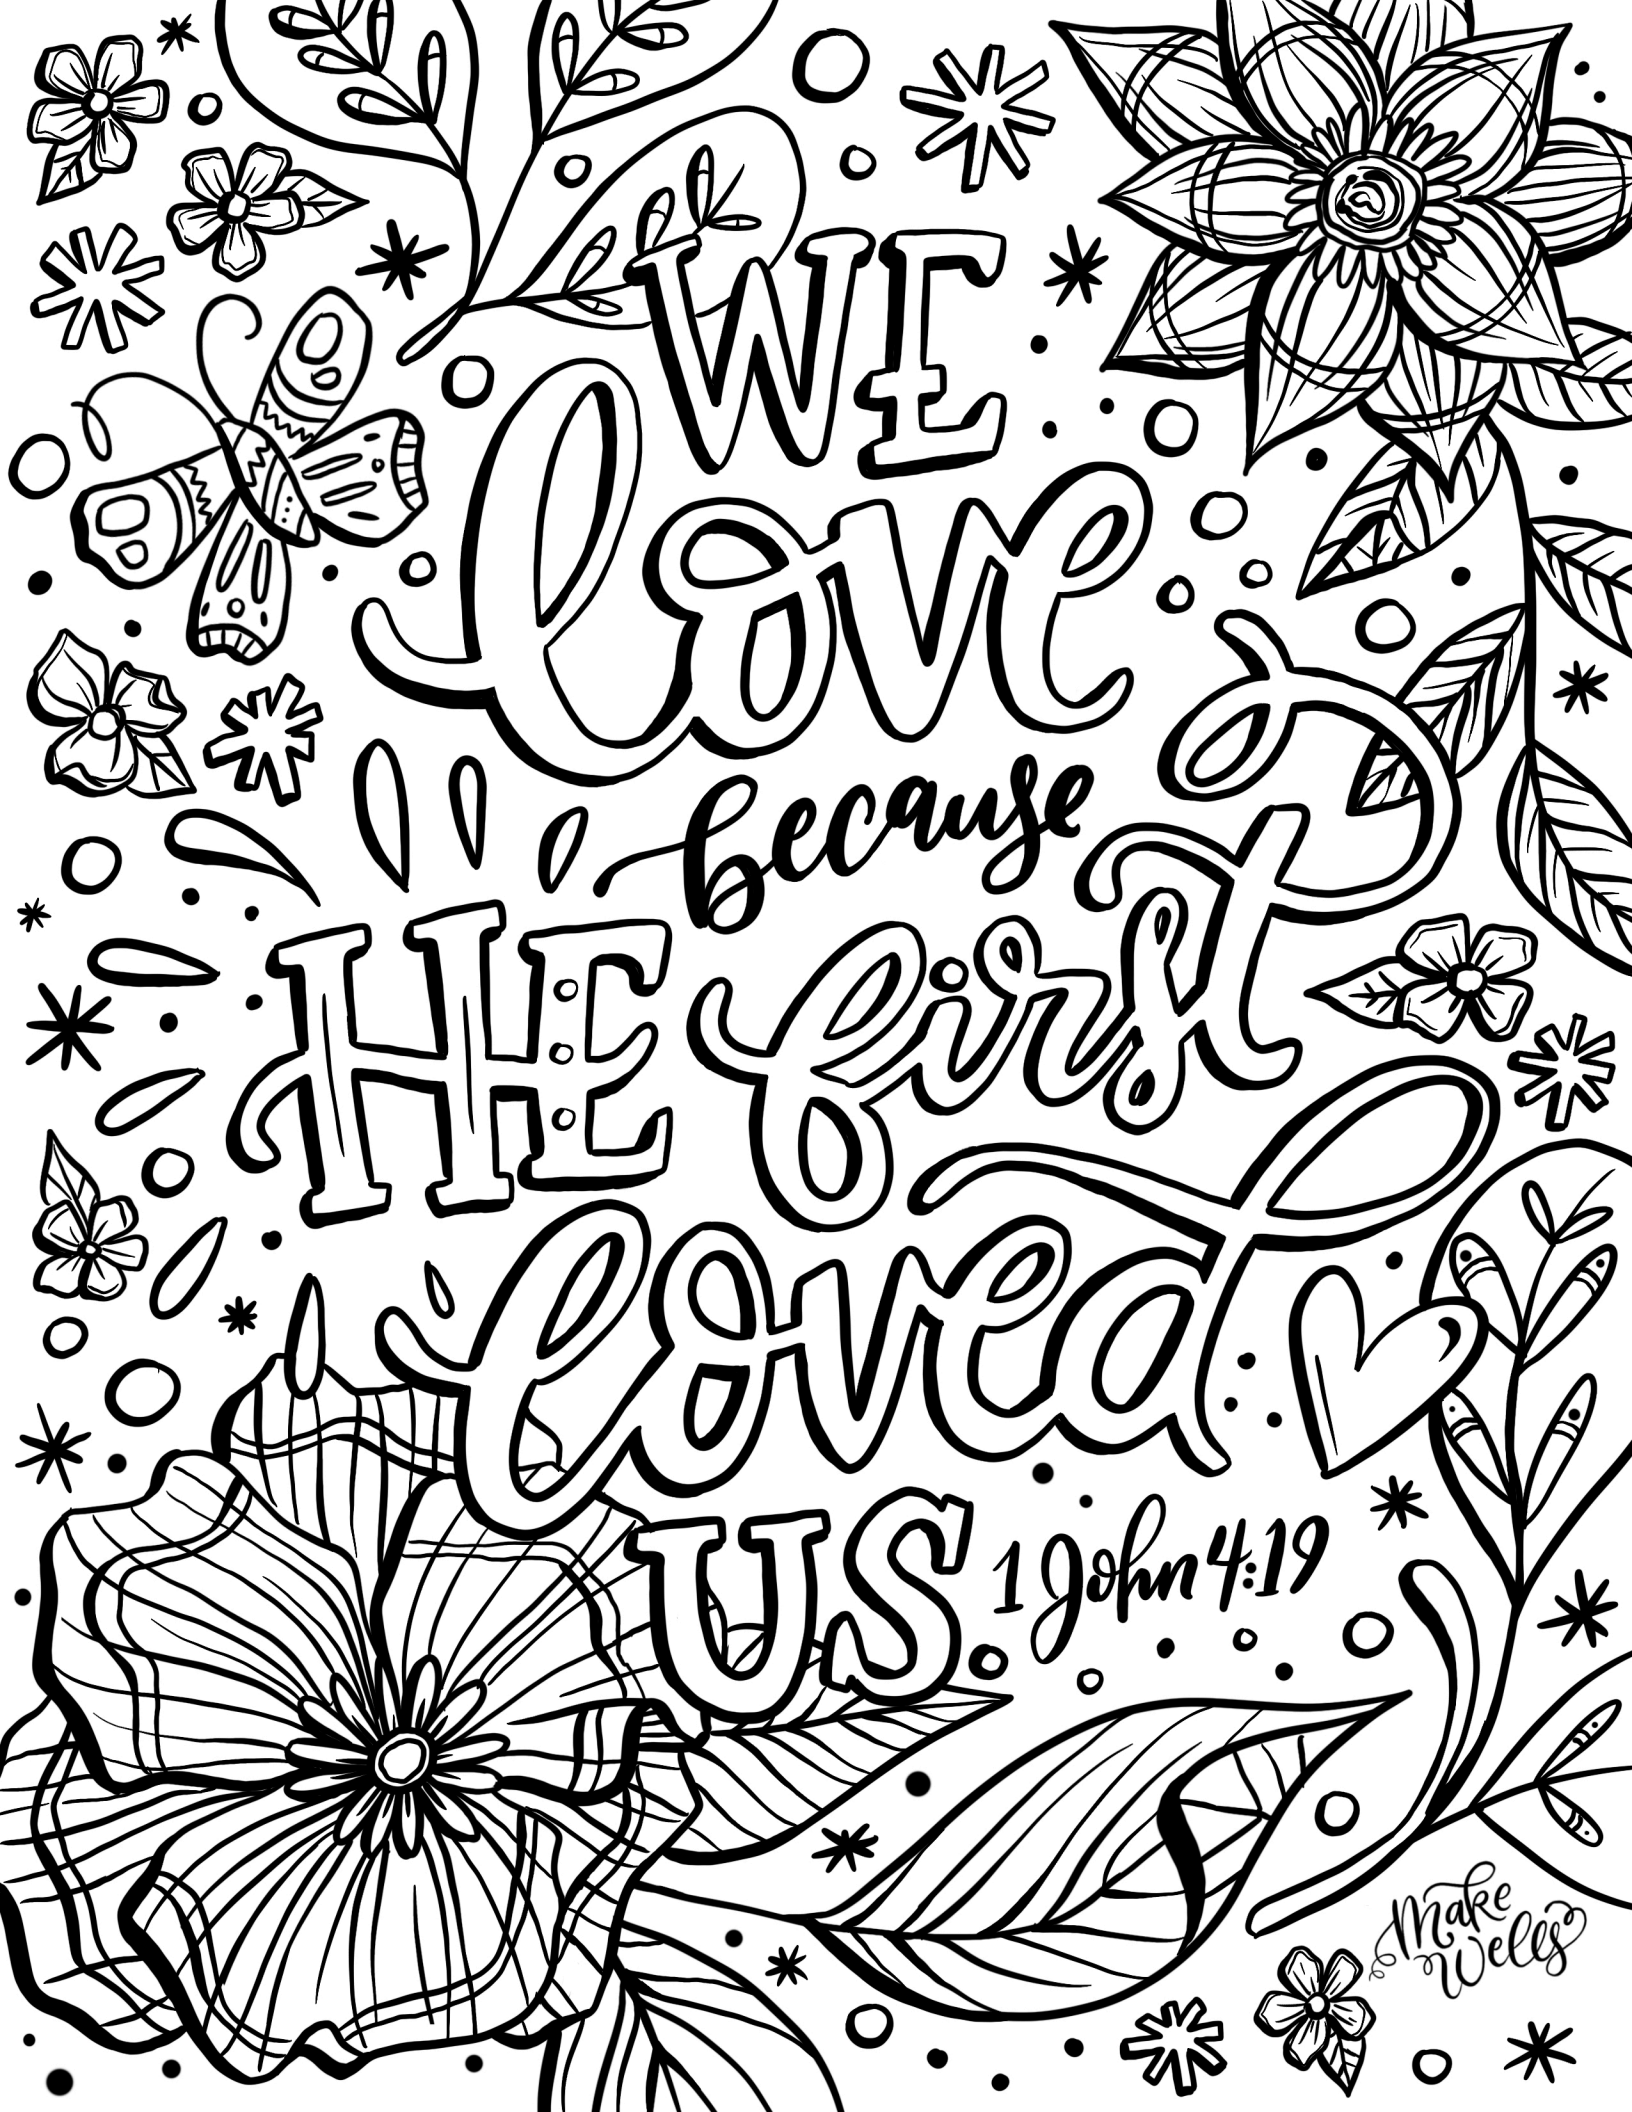 WE
love
because
HE first
loved
us. 1 John 4:19
Make
Wells